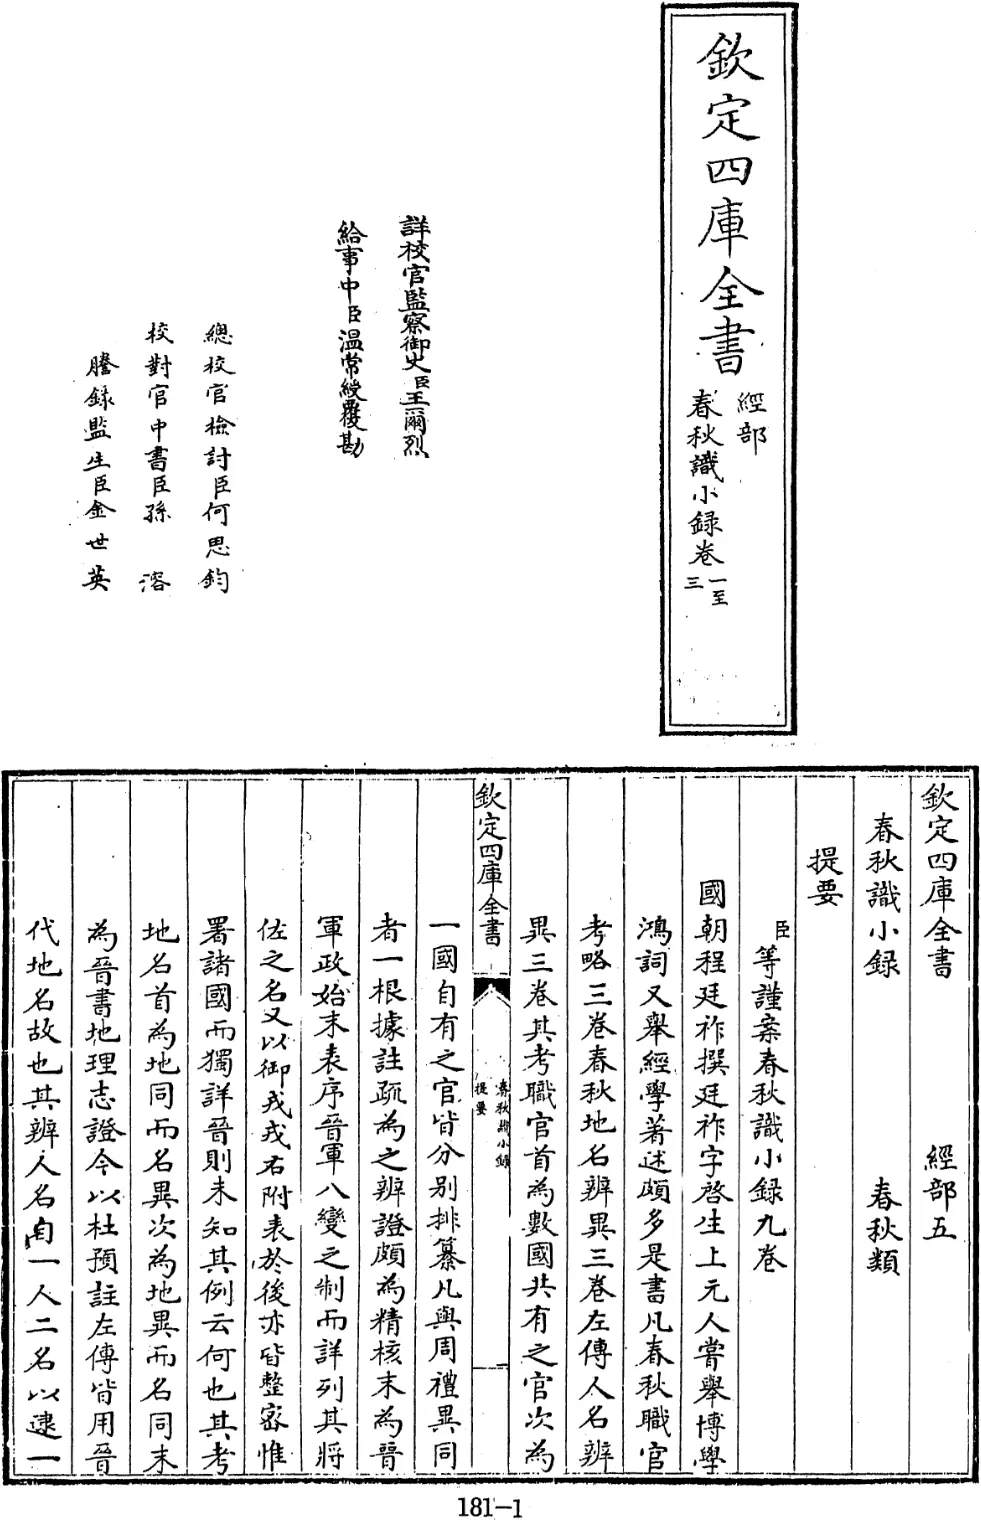 欽定四庫全書
經部
春秋識小錄卷一至三
詳校官監察御史臣王爾烈
給事中臣溫常綬覆勘
總校官檢討臣何思鈞
校對官中書臣孫溶
謄錄監生臣金世英
欽定四庫全書 經部五
春秋識小錄 春秋類
提要
臣等謹案春秋識小錄九卷
國朝程廷祚撰廷祚字啓生上元人嘗舉博學
鴻詞又舉經學著述頗多是書凡春秋職官
考略三卷春秋地名辨異三卷左傳人名辨
異三卷其考職官首為數國共有之官次為
欽定四庫全書
春秋識小錄
提要
一國自有之官皆分別排纂凡與周禮異同
者一一根據註疏為之辨證頗為精核末為晉
軍政始末表序晉軍八變之制而詳列其將
佐之名又以御戎戎右附表於後亦皆整密惟
署諸國而獨詳晉則未知其例云何也其考
地名首為地同而名異次為地異而名同末
為晉書地理志證今以杜預註左傳皆用晉
代地名故也其辨人名自一人二名以逮一
181-1